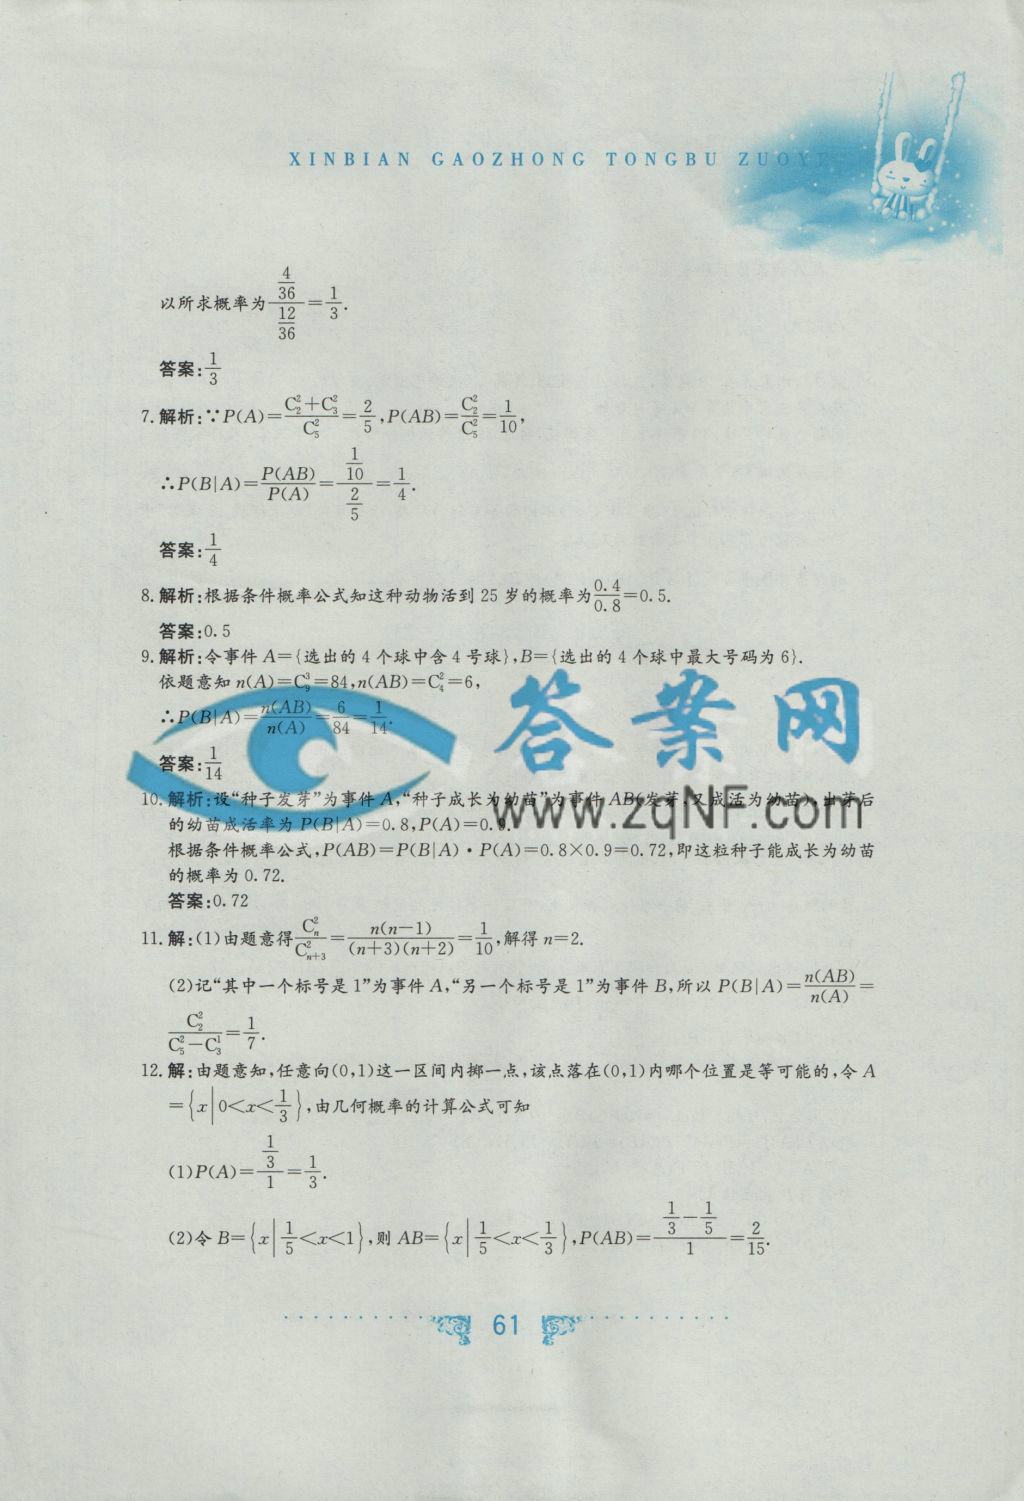 XINBIAN GAOZHONG TONGBU ZUOYE
以所求概率为(4/36)/(12/36)=1/3.
答案:1/3
7.解析:∵P(A)=(C₂²+C₃²)/C₅²=2/5,P(AB)=C₂²/C₅²=1/10,
∴P(B|A)=P(AB)/P(A)=(1/10)/(2/5)=1/4.
答案:1/4
8.解析:根据条件概率公式知这种动物活到25岁的概率为0.4/0.8=0.5.
答案:0.5
9.解析:令事件A={选出的4个球中含4号球},B={选出的4个球中最大号码为6}.
依题意知n(A)=C₉³=84,n(AB)=C₄²=6,
∴P(B|A)=n(AB)/n(A)=6/84=1/14.
答案:1/14
答案网
www.zqNF.com
10.解析:设“种子发芽”为事件A,“种子成长为幼苗”为事件AB(发芽,又成活为幼苗),出芽后
的幼苗成活率为P(B|A)=0.8,P(A)=0.9.
根据条件概率公式,P(AB)=P(B|A)·P(A)=0.8×0.9=0.72,即这粒种子能成长为幼苗
的概率为0.72.
答案:0.72
11.解:(1)由题意得Cₙ²/Cₙ₊₃²=n(n-1)/((n+3)(n+2))=1/10,解得n=2.
(2)记“其中一个标号是1”为事件A,“另一个标号是1”为事件B,所以P(B|A)=n(AB)/n(A)=
C₂²/(C₅²-C₃²)=1/7.
12.解:由题意知,任意向(0,1)这一区间内掷一点,该点落在(0,1)内哪个位置是等可能的,令A
={x|0<x<1/3},由几何概率的计算公式可知
(1)P(A)=(1/3)/1=1/3.
(2)令B={x|1/5<x<1},则AB={x|1/5<x<1/3},P(AB)=(1/3-1/5)/1=2/15.
61